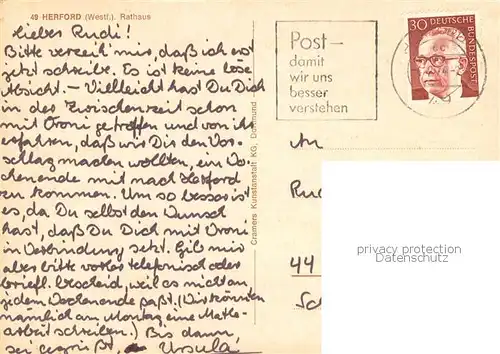 49 HERFORD (Westf.). Rathaus
Lieber Rudi!
Bitte verzeih mir, daß ich erst
jetzt schreibe. Es ist keine böse
Absicht. – Vielleicht hast Du Dich
in der Zwischenzeit schon
mit Vroni getroffen und von ihr
erfahren, daß wir Dir den Vor-
schlag machen wollten, ein Wo-
chenende mit nach Herford
zu kommen. Um so besser ist
es, da Du selbst den Wunsch
hast, daß Du Dich mit Vroni
in Verbindung setzt. Gib mir
aber bitte vorher telefonisch oder
briefl. Bescheid, weil es nicht an
jedem Wochenende paßt. (Wir können
nämlich am Montag eine Mathe-
arbeit schreiben.) Bis dann
sei gegrüßt, Ursula
Cramers Kunstanstalt KG, Dortmund
Post –
damit
wir uns
besser
verstehen
30 DEUTSCHE
BUNDESPOST
An
Rud
44
Sc
privacy protection
Datenschutz